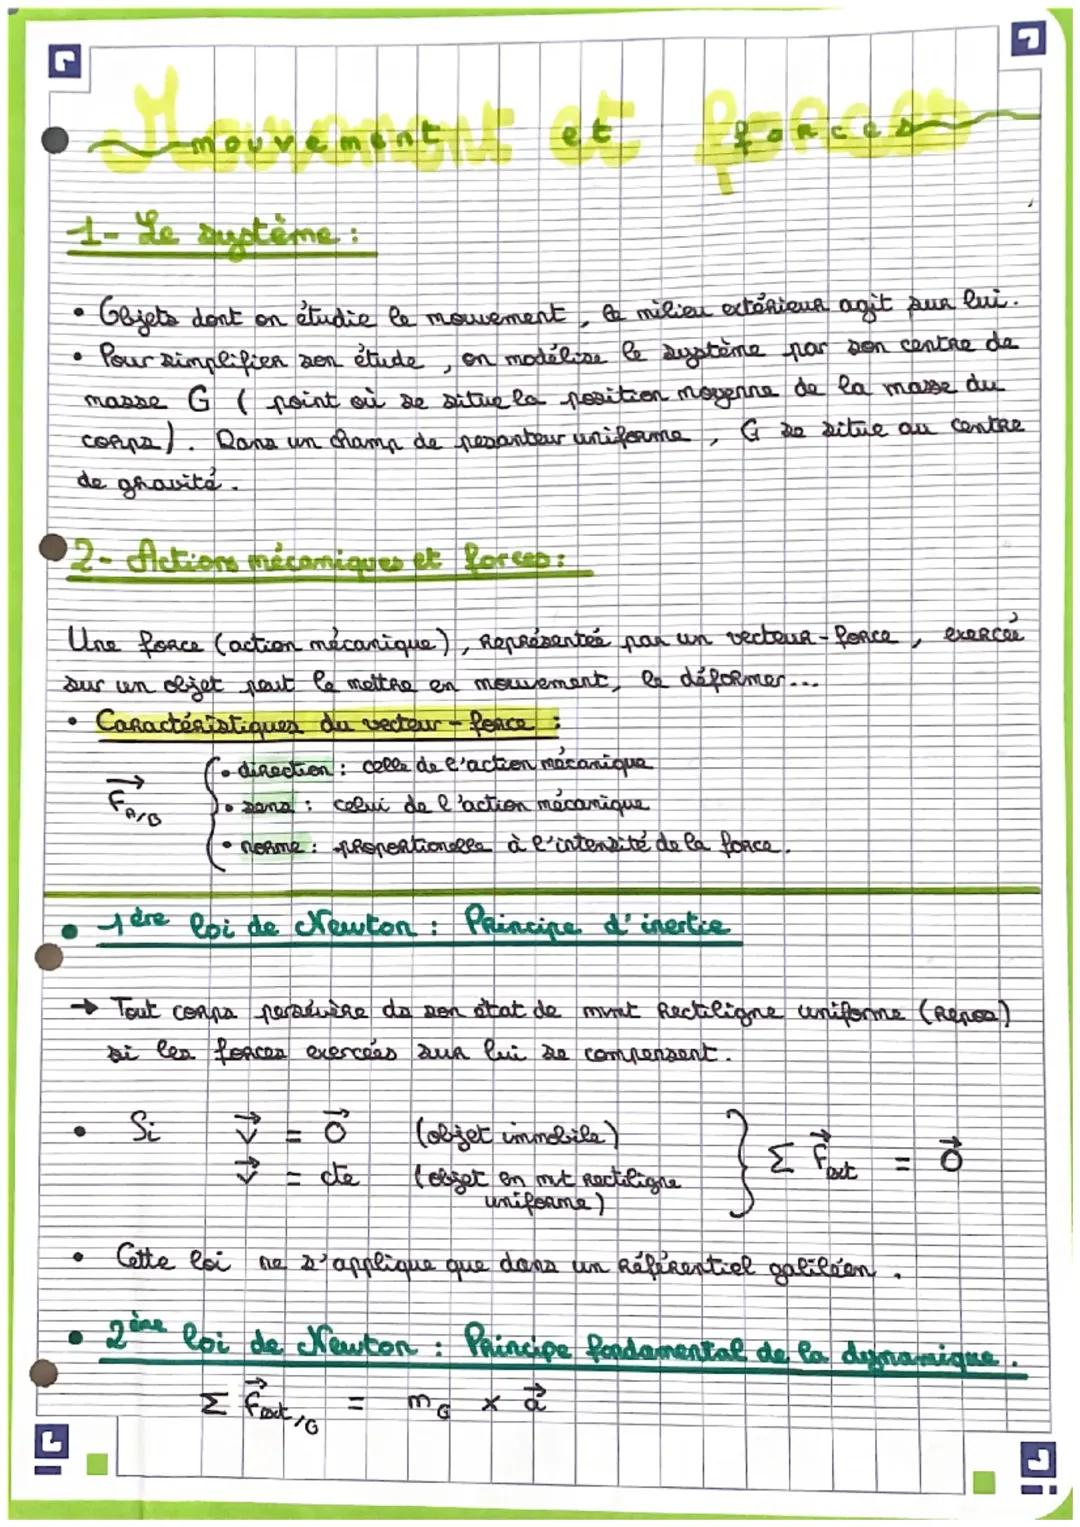 Mouvement et forces
mouvement et forces
1- Le système :
• Objets dont on étudie le mouvement, le milieu extérieur agit sur lui.
• Pour simplifier son étude, on modélise le système par son centre de
masse G ( point où se situe la position moyenne de la masse du
corps). Dans un champ de pesanteur uniforme, G se situe au centre
de gravité.
2- Actions mécaniques et forces :
Une force (action mécanique), représentée par un vecteur-force, exercée
sur un objet peut le mettre en mouvement, le déformer...
• Caractéristiques du vecteur-force :
• direction : celle de l'action mécanique
F⃗A/B
• sens : celui de l'action mécanique
• norme : proportionelle à l'intensité de la force.
• 1ère loi de Newton : Principe d'inertie
→ Tout corps persévère ds son état de mvmt rectiligne uniforme (repos)
si les forces exercées sur lui se compensent.
• Si v⃗ = 0⃗ (objet immobile)
v⃗ = cte (objet en mvt rectiligne
uniforme)
} Σ F⃗ext = 0⃗
• Cette loi ne s'applique que dans un référentiel galiléen.
• 2ème loi de Newton : Principe fondamental de la dynamique.
Σ F⃗ext/G = mG × a⃗